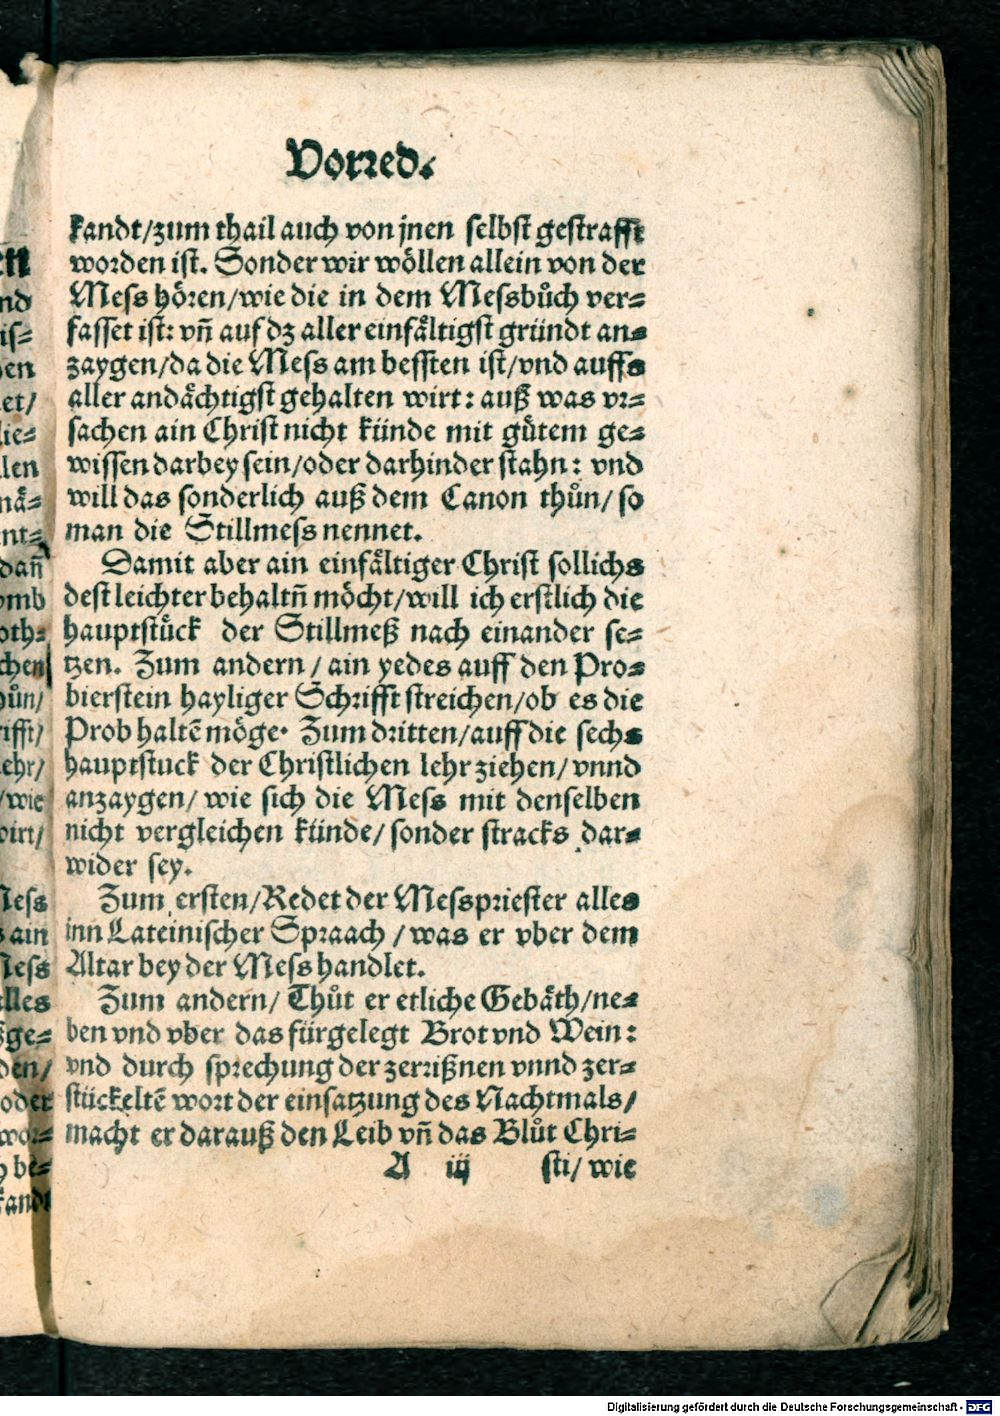 Vorred.
kandt/zum thail auch von jnen selbst gestrafft
worden ist. Sonder wir wöllen allein von der
Mess hören/wie die in dem Messbůch ver⸗
fasset ist: vn̄ auf dz aller einfältigst gründt an⸗
zaygen/da die Mess am bessten ist/vnd auffs
aller andächtigst gehalten wirt: auß was vr⸗
sachen ain Christ nicht künde mit gůtem ge⸗
wissen darbey sein/oder darhinder stahn: vnd
will das sonderlich auß dem Canon thůn/ so
man die Stillmess nennet.
Damit aber ain einfältiger Christ sollichs
dest leichter behaltn̄ möcht/will ich erstlich die
hauptstück der Stillmeß nach einander se⸗
tzen. Zum andern/ ain yedes auff den Pro⸗
bierstein hayliger Schrifft streichen/ob es die
Prob haltē möge. Zum dritten/auff die sechs
hauptstuck der Christlichen lehr ziehen/vnnd
anzaygen/ wie sich die Mess mit denselben
nicht vergleichen künde/ sonder stracks dar⸗
wider sey.
Zum ersten/Redet der Messpriester alles
inn Lateinischer Spraach /was er vber dem
Altar bey der Mess handlet.
Zum andern/ Thůt er etliche Gebäth/ne⸗
ben vnd vber das fürgelegt Brot vnd Wein:
vnd durch sprechung der zerrißnen vnnd zer⸗
stückeltē wort der einsatzung des Nachtmals/
macht er darauß den Leib vn̄ das Blůt Chri⸗
A iij sti/ wie
Digitalisierung gefördert durch die Deutsche Forschungsgemeinschaft - DFG